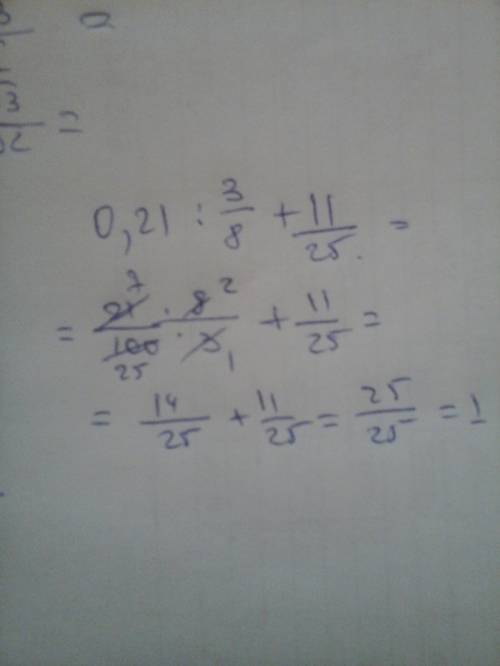 3
=
0,21 : 3/8 + 11/25 =
= 21 7 · 8 2 / 100 25 · 3 1 + 11/25 =
= 14/25 + 11/25 = 25/25 = 1